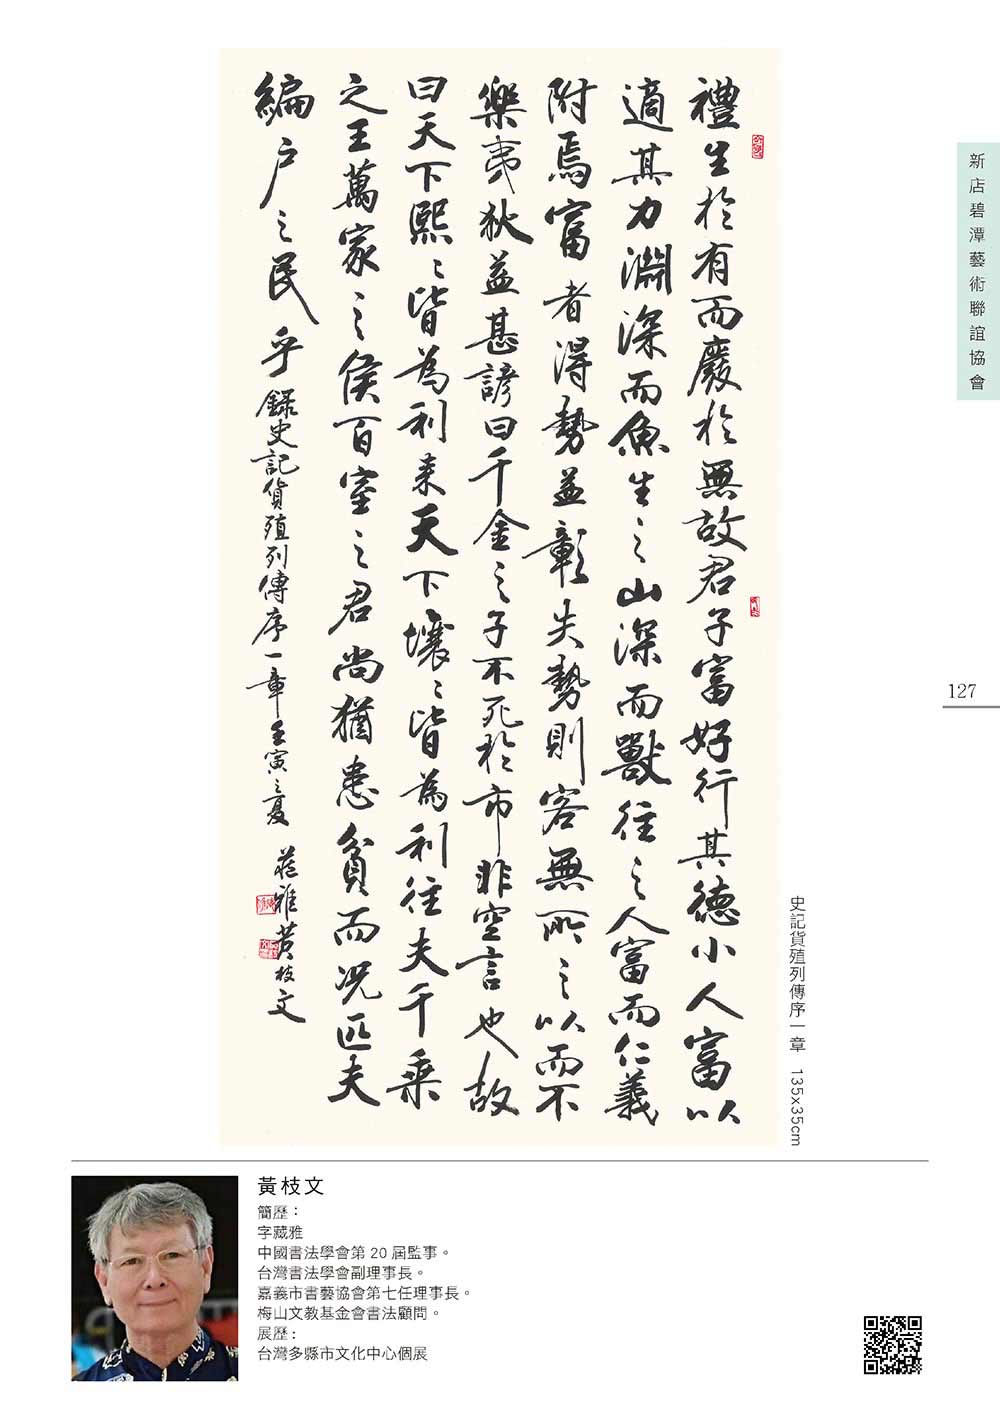 禮生於有而廢於無故君子富好行其德小人富以
適其力淵深而魚生之山深而獸往之人富而仁義
附焉富者得勢益彰失勢則客無所之以而不
樂夷狄益甚諺曰千金之子不死於市非空言也故
曰天下熙ミ皆為利来天下壤ミ皆為利往夫千乗
之王萬家之侯百室之君尚猶患貧而况匹夫
編户之民乎 錄史記貨殖列傳序一章壬寅之夏 莊雅黃枝文
新店碧潭藝術聯誼協會
127
史記貨殖列傳序一章 135x35cm
黃枝文
簡歷：
字藏雅
中國書法學會第 20 屆監事。
台灣書法學會副理事長。
嘉義市書藝協會第七任理事長。
梅山文教基金會書法顧問。
展歷：
台灣多縣市文化中心個展